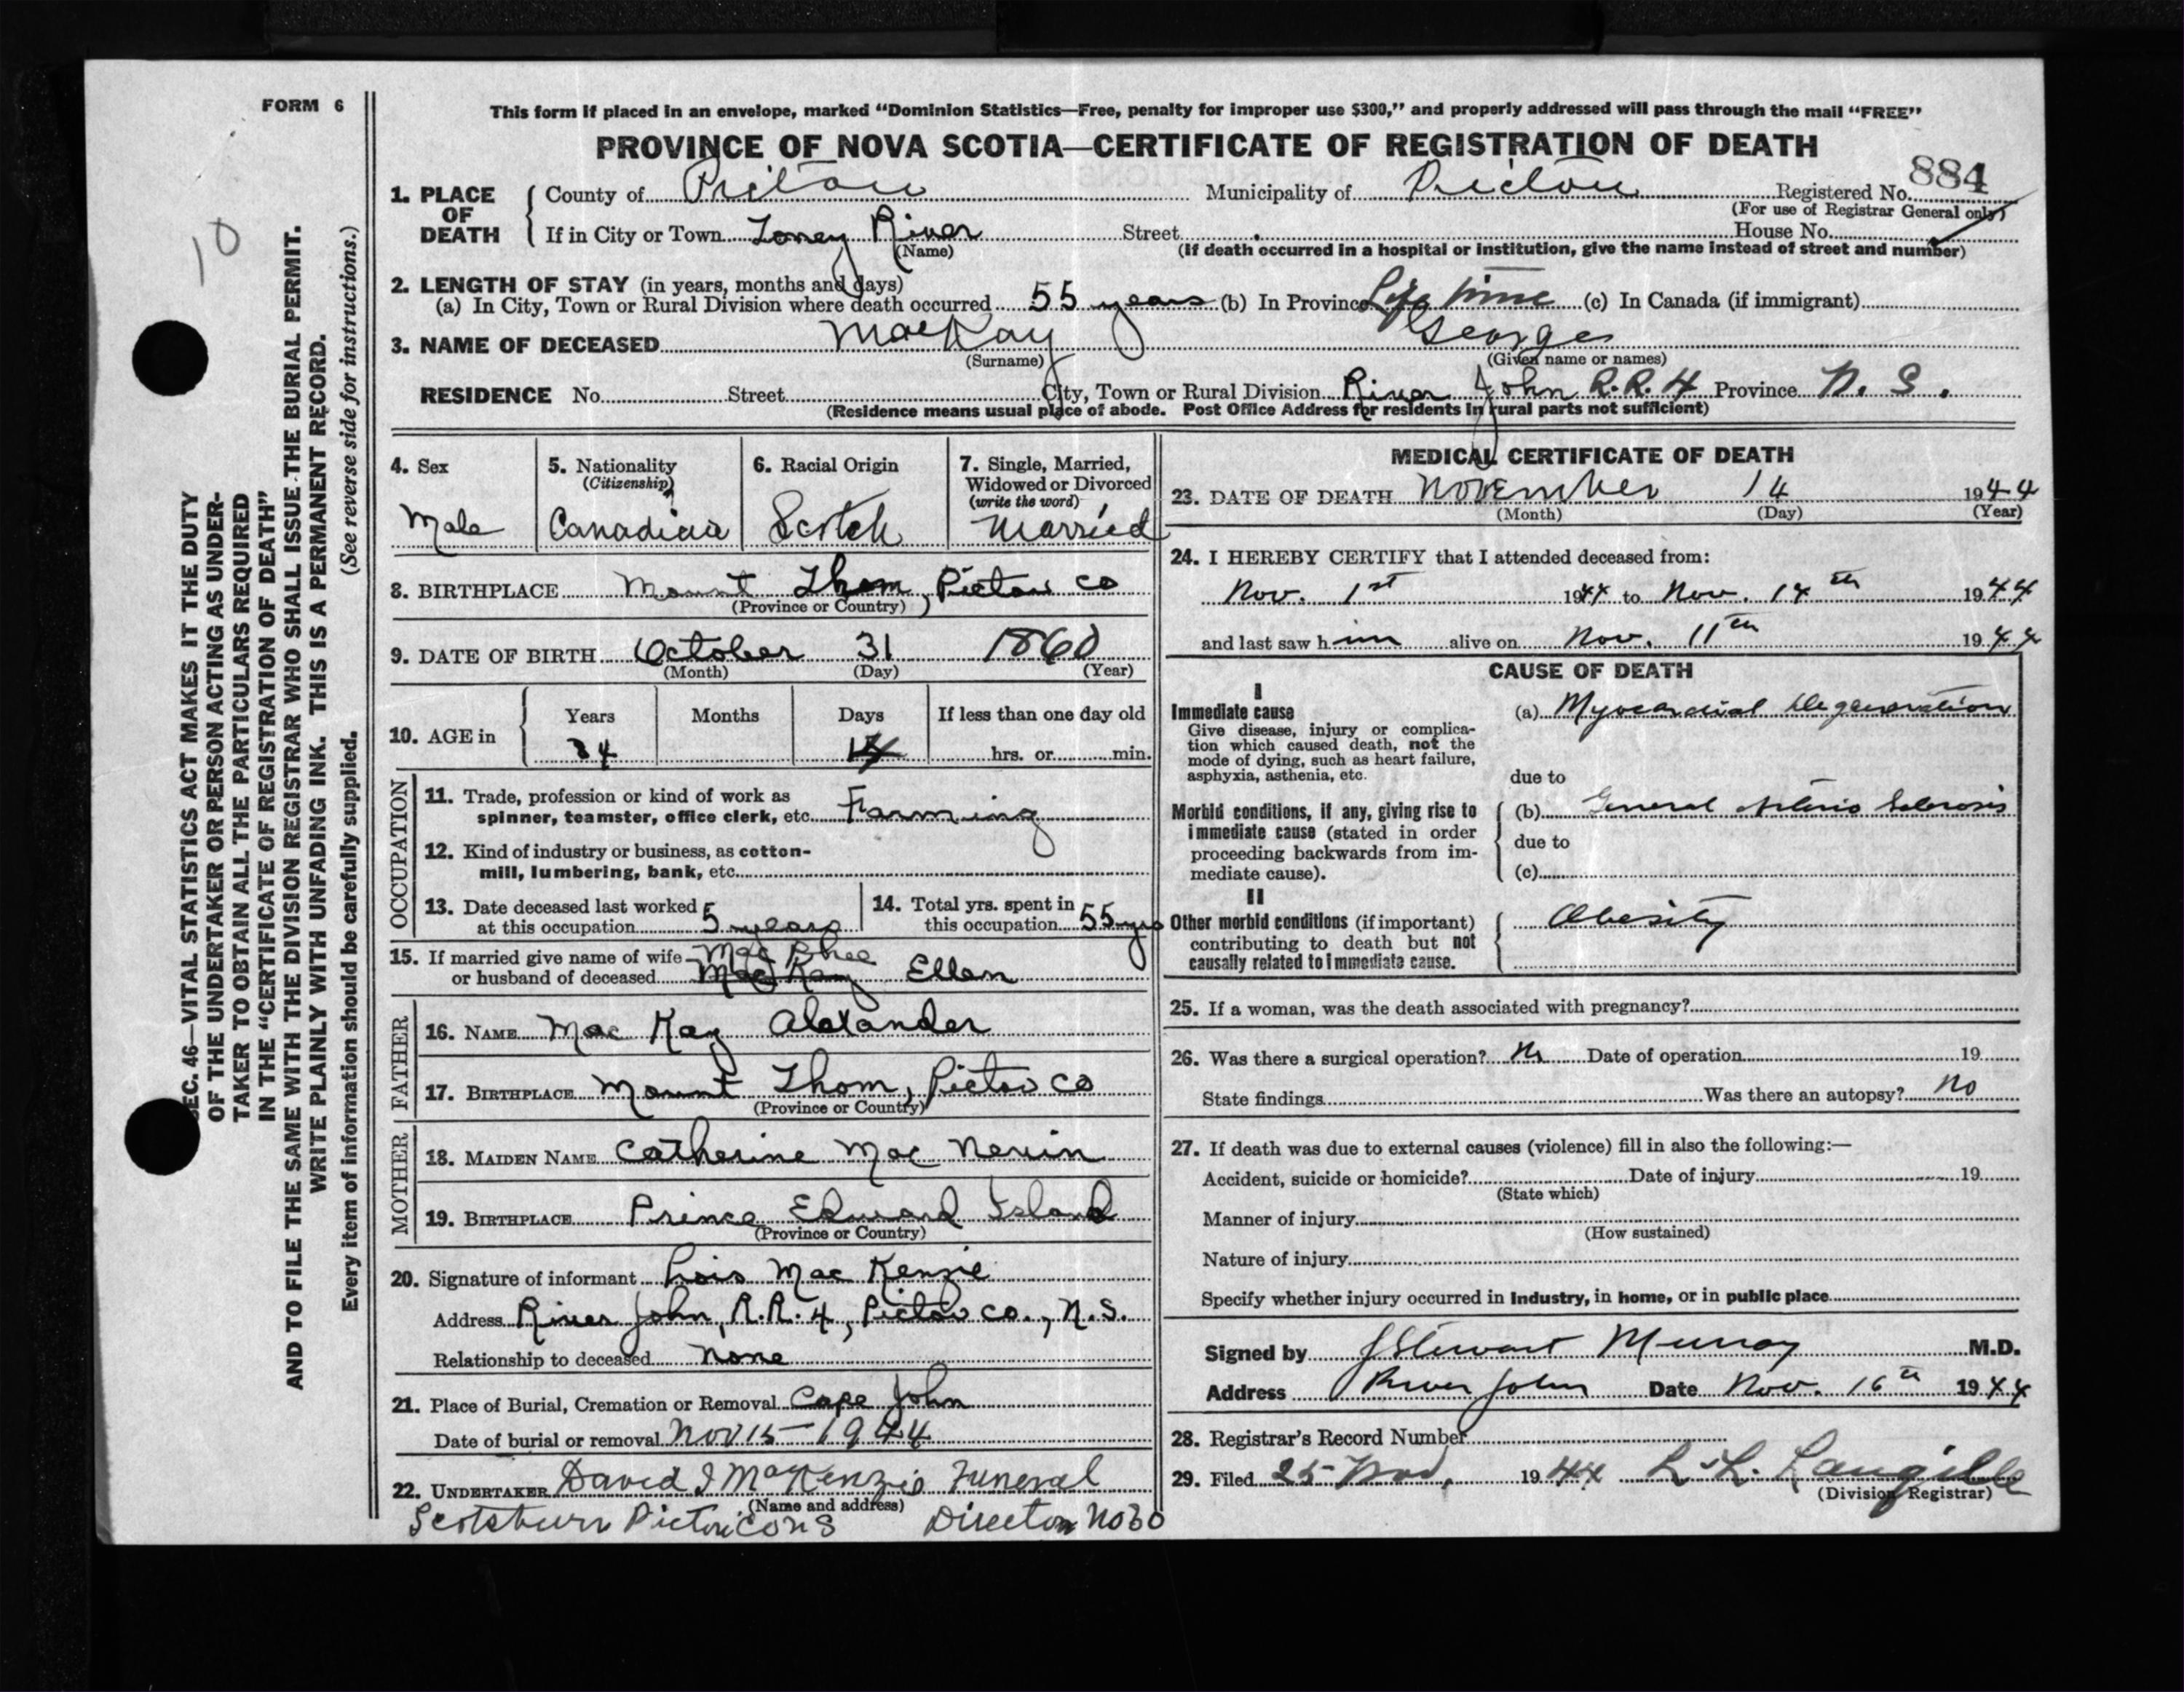 FORM 6
This form if placed in an envelope, marked "Dominion Statistics—Free, penalty for improper use $300," and properly addressed will pass through the mail "FREE"
PROVINCE OF NOVA SCOTIA—CERTIFICATE OF REGISTRATION OF DEATH
884
1. PLACE OF DEATH
County of Pictou Municipality of Pictou Registered No.
(For use of Registrar General only)
If in City or Town Toney River Street House No.
(Name) (If death occurred in a hospital or institution, give the name instead of street and number)
2. LENGTH OF STAY (in years, months and days)
(a) In City, Town or Rural Division where death occurred 55 years (b) In Province Life time (c) In Canada (if immigrant)
3. NAME OF DECEASED MacKay George
(Surname) (Given name or names)
RESIDENCE No. Street City, Town or Rural Division River John R.R. 4 Province N. S.
(Residence means usual place of abode. Post Office Address for residents in rural parts not sufficient)
4. Sex
Male
5. Nationality
(Citizenship)
Canadian
6. Racial Origin
Scotch
7. Single, Married,
Widowed or Divorced
(write the word)
Married
8. BIRTHPLACE Mount Thom, Pictou Co
(Province or Country)
9. DATE OF BIRTH October 31 1860
(Month) (Day) (Year)
10. AGE in
Years Months Days If less than one day old
84 14 hrs. or min.
OCCUPATION
11. Trade, profession or kind of work as
spinner, teamster, office clerk, etc. Farming
12. Kind of industry or business, as cotton-
mill, lumbering, bank, etc.
13. Date deceased last worked
at this occupation 5 years
14. Total yrs. spent in
this occupation 55 yrs
15. If married give name of wife Mac Phee
or husband of deceased Mac Kay Ellen
FATHER
16. NAME Mac Kay Alexander
17. BIRTHPLACE Mount Thom, Pictou Co
(Province or Country)
MOTHER
18. MAIDEN NAME Catherine Mac Nevin
19. BIRTHPLACE Prince Edward Island
(Province or Country)
20. Signature of informant Lois Mac Kenzie
Address River John, R.R. 4, Pictou Co., N.S.
Relationship to deceased None
21. Place of Burial, Cremation or Removal Cape John
Date of burial or removal Nov 15 - 1944
22. UNDERTAKER David J MacKenzie Funeral
(Name and address)
Scotsburn Pictou Co N S Director No 30
MEDICAL CERTIFICATE OF DEATH
23. DATE OF DEATH November 14 1944
(Month) (Day) (Year)
24. I HEREBY CERTIFY that I attended deceased from:
Nov. 1st 1944 to Nov. 14th 1944
and last saw him alive on Nov. 11th 1944
CAUSE OF DEATH
I
Immediate cause
Give disease, injury or complica-
tion which caused death, not the
mode of dying, such as heart failure,
asphyxia, asthenia, etc.
(a) Myocardial Degeneration
due to
Morbid conditions, if any, giving rise to
immediate cause (stated in order
proceeding backwards from im-
mediate cause).
(b) General Arterio Sclerosis
due to
(c)
II
Other morbid conditions (if important)
contributing to death but not
causally related to immediate cause.
Obesity
25. If a woman, was the death associated with pregnancy?
26. Was there a surgical operation? No Date of operation 19
State findings Was there an autopsy? No
27. If death was due to external causes (violence) fill in also the following:—
Accident, suicide or homicide? Date of injury 19
(State which)
Manner of injury
(How sustained)
Nature of injury
Specify whether injury occurred in industry, in home, or in public place
Signed by J Stewart Murray M.D.
Address River John Date Nov. 16th 1944
28. Registrar's Record Number
29. Filed 25 Nov. 1944 L. L. Langille
(Division Registrar)
10
SEC. 46—VITAL STATISTICS ACT MAKES IT THE DUTY
OF THE UNDERTAKER OR PERSON ACTING AS UNDER-
TAKER TO OBTAIN ALL THE PARTICULARS REQUIRED
IN THE "CERTIFICATE OF REGISTRATION OF DEATH"
AND TO FILE THE SAME WITH THE DIVISION REGISTRAR WHO SHALL ISSUE THE BURIAL PERMIT.
WRITE PLAINLY WITH UNFADING INK. THIS IS A PERMANENT RECORD.
Every item of information should be carefully supplied. (See reverse side for instructions.)